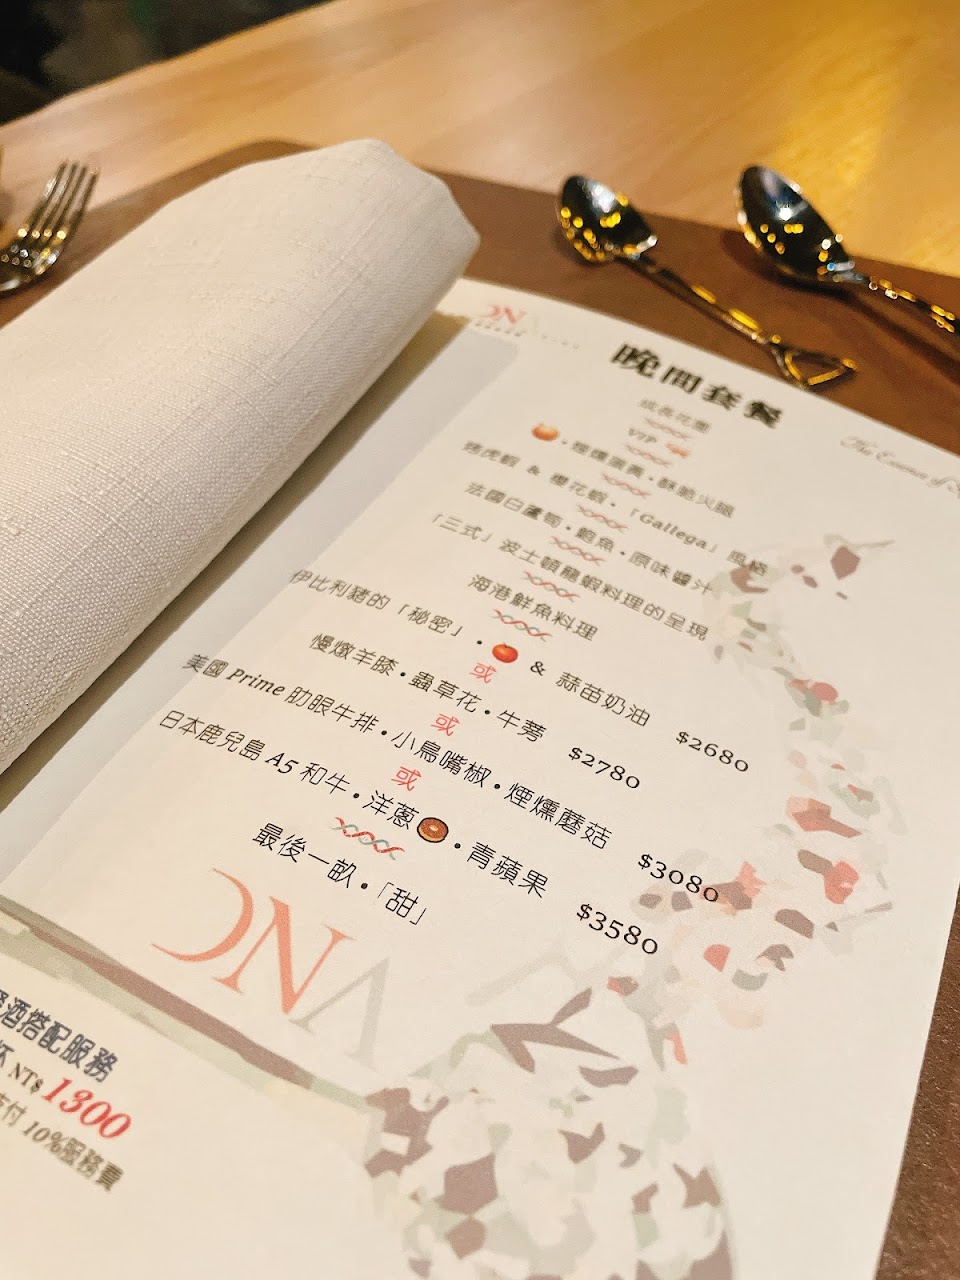 DN
晚間套餐
The Essence of
成長花園
VIP
🍅•柑橘蛋黃•酥脆火腿
烤虎蝦 & 櫻花蝦•「Gallega」風格
法國白蘆筍•鮑魚•原味醬汁
「三式」波士頓龍蝦料理的呈現
海港鮮魚料理
伊比利豬的「秘密」•🍅 & 蒜苗奶油 $2680
或
慢燉羊膝•蟲草花•牛蒡 $2780
或
美國 Prime 肋眼牛排•小鳥嘴椒•煙燻蘑菇 $3080
或
日本鹿兒島 A5 和牛•洋蔥🍩•青蘋果 $3580
最後一畝•「甜」
DNA
酒搭配服務
杯 NT$ 1300
支付 10%服務費